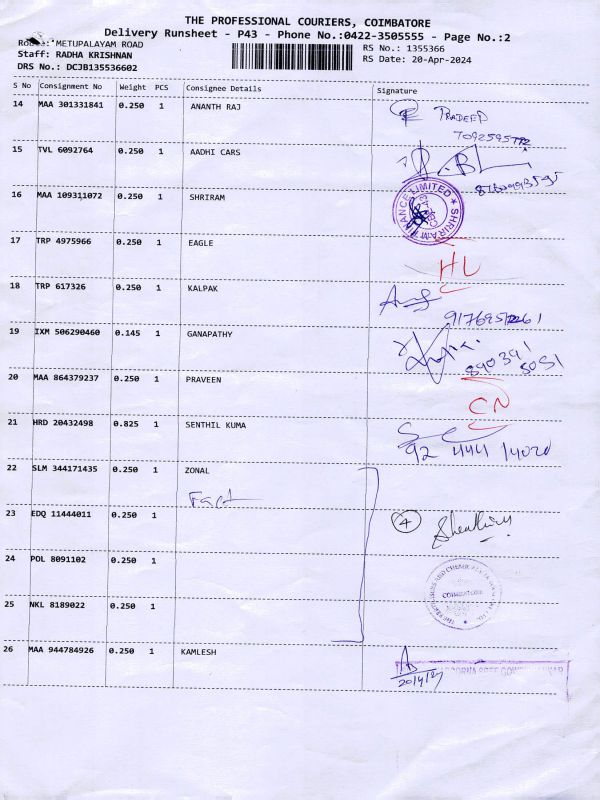 THE PROFESSIONAL COURIERS, COIMBATORE
Delivery Runsheet - P43 - Phone No.:0422-3505555 - Page No.:2
METUPALAYAM ROAD
RS No.: 1355366
Staff: RADHA KRISHNAN
RS Date: 20-Apr-2024
DRS No.: DCJB135536602
S No Consignment No Weight PCS Consignee Details Signature
14 MAA 301331841 0.250 1 ANANTH RAJ
PRADEEP
15 TVL 6092764 0.250 1 AADHI CARS
16 MAA 109311072 0.250 1 SHRIRAM
SHRIRAM FINANCE LIMITED
17 TRP 4975966 0.250 1 EAGLE
HL
18 TRP 617326 0.250 1 KALPAK
19 IXM 506290460 0.145 1 GANAPATHY
890391
5051
20 MAA 864379237 0.250 1 PRAVEEN
CN
21 HRD 20432498 0.825 1 SENTHIL KUMA
92 444 14020
22 SLM 344171435 0.250 1 ZONAL
Fact
23 EDQ 11444011 0.250 1
4
24 POL 8091102 0.250 1
COIMBATORE
25 NKL 8189022 0.250 1
26 MAA 944784926 0.250 1 KAMLESH